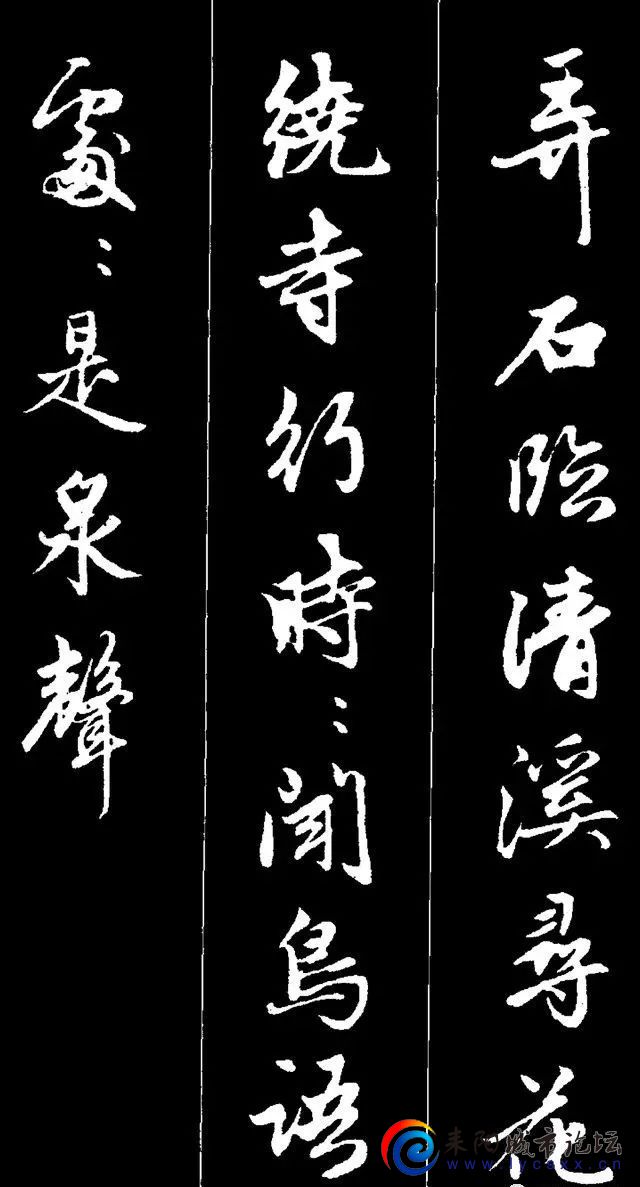 弄石臨清溪尋花
繞寺行時〻聞鳥語
處〻是泉聲
耒阳城市论坛